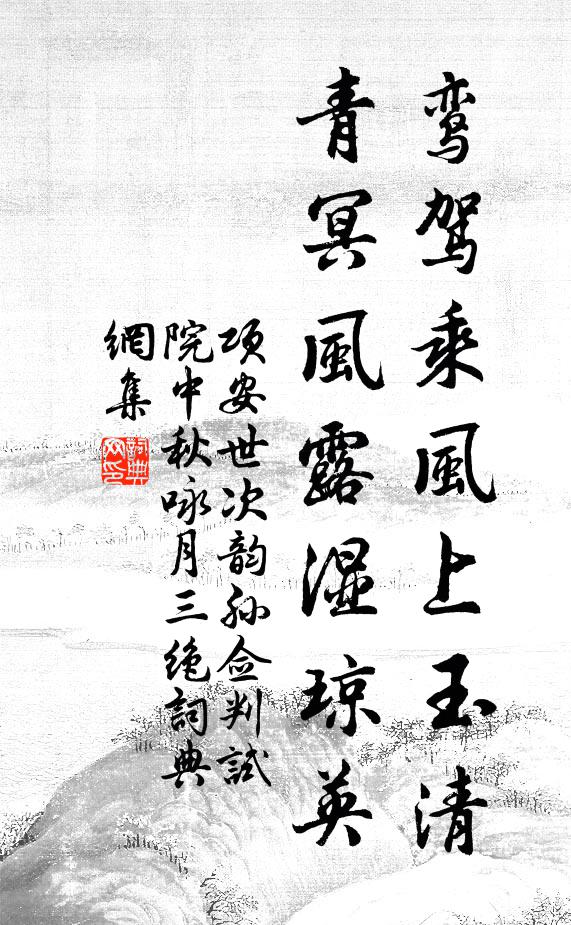 鸾驾乘風上玉清
青冥風露湿琼英
项安世次韵孙佥判試
院中秋咏月三绝詞典
網集
詞典
网印